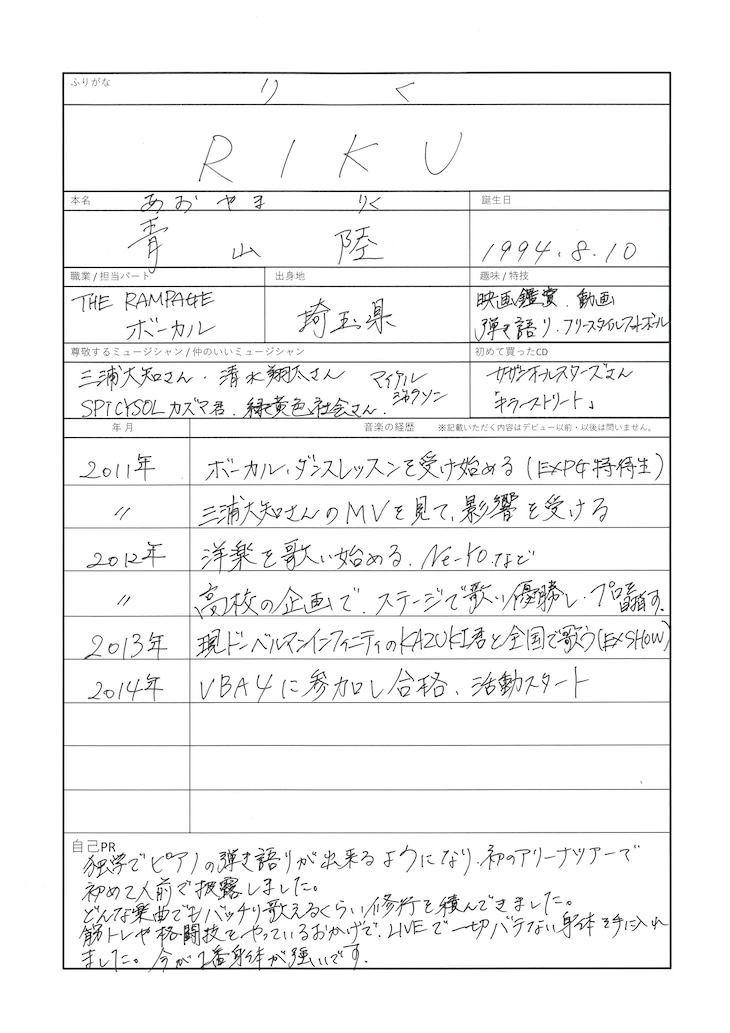 ふりがな
りく
RIKU
本名
あおやま りく
誕生日
青山 陸
1994.8.10
職業 / 担当パート
出身地
趣味 / 特技
THE RAMPAGE
ボーカル
埼玉県
映画鑑賞.動画
弾き語り.フリースタイルフットボール
尊敬するミュージシャン / 仲のいいミュージシャン
初めて買ったCD
三浦大知さん.清水翔太さん マイケル
ジャクソン
SPiCYSOL カズマ君.緑黄色社会さん.
サザンオールスターズさん
「キラーストリート」
年 月
音楽の経歴 ※記載いただく内容はデビュー以前・以後は問いません。
2011年 ボーカル、ダンスレッスンを受け始める(EXPG特待生)
〃 三浦大知さんのMVを見て、影響を受ける
2012年 洋楽を歌い始める.Ne-Yo.など
〃 高校の企画で、ステージで歌い優勝し、プロ目指す.
2013年 現ドーベルマンインフィニティのKAZUKI君と全国で歌う(EXSHOW)
2014年 VBA4に参加し合格、活動スタート
自己PR
独学でピアノの弾き語りが出来るようになり.初のアリーナツアーで
初めて人前で披露しました。
どんな楽曲でもバッチリ歌えるくらい修行を積んできました。
筋トレや格闘技をやっているおかげで、LIVEで一切バテない身体を手に入れ
ました。今が1番身体が強いです.